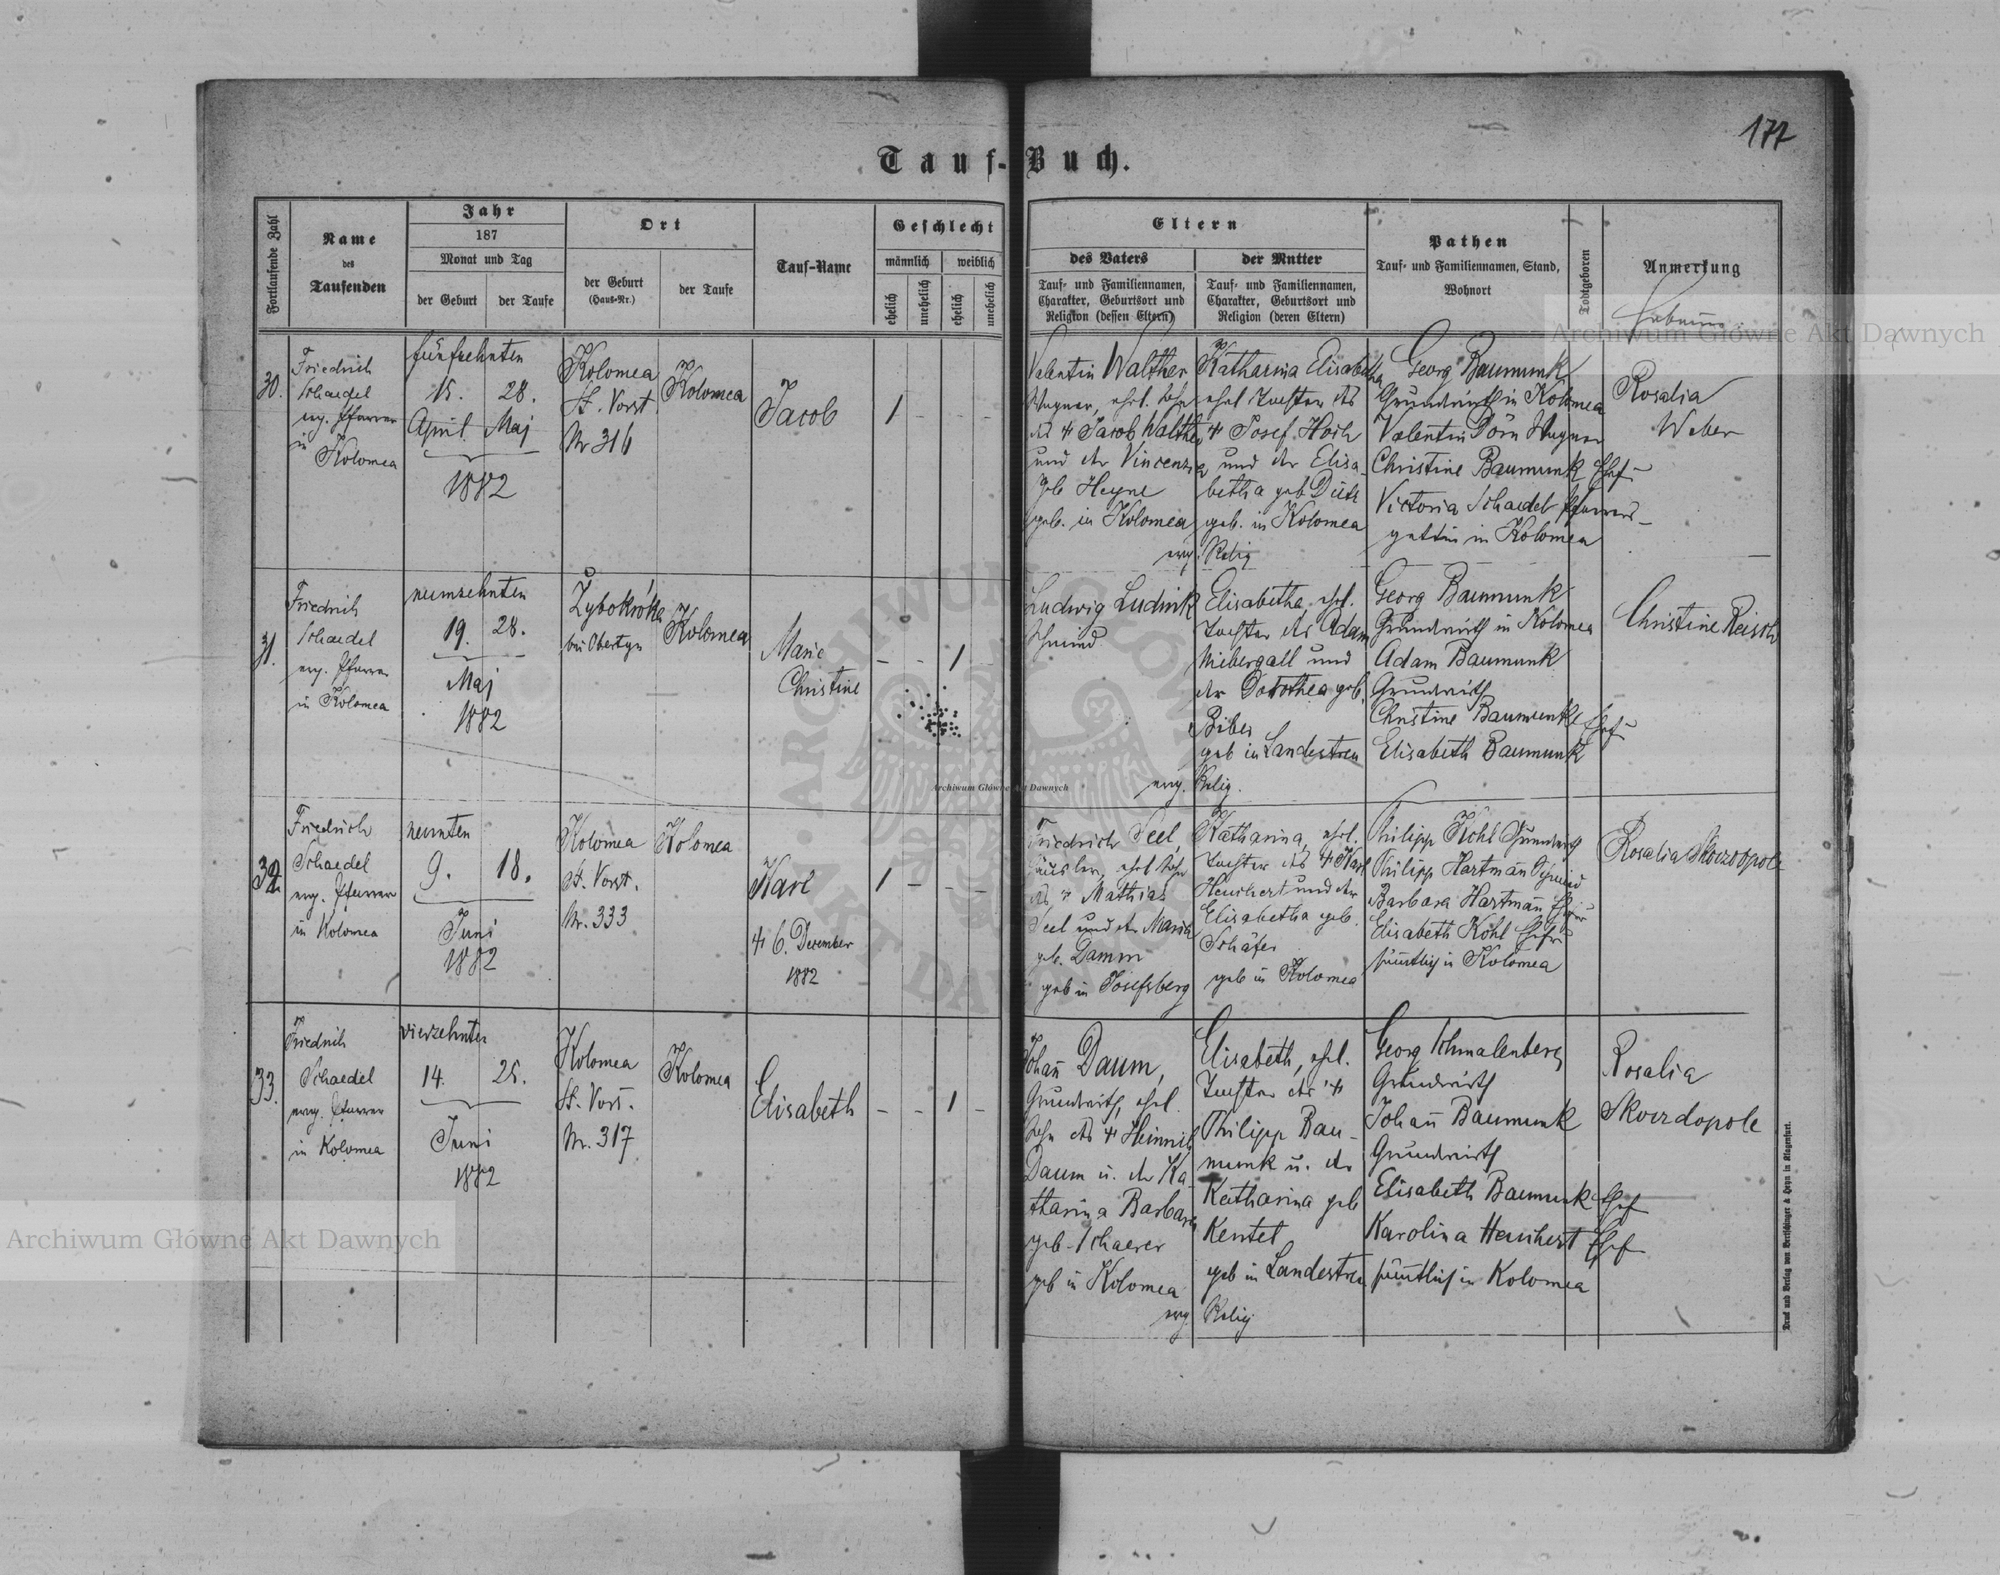 177
Tauf-Buch.
Fortlaufende Zahl
Name
des
Taufenden
Jahr
187
Monat und Tag
der Geburt
der Taufe
Ort
der Geburt
(Haus-Nr.)
der Taufe
Tauf-Name
Geschlecht
männlich
weiblich
ehelich
unehelich
ehelich
unehelich
Eltern
des Vaters
Tauf- und Familiennamen,
Charakter, Geburtsort und
Religion (dessen Eltern)
der Mutter
Tauf- und Familiennamen,
Charakter, Geburtsort und
Religion (deren Eltern)
Pathen
Tauf- und Familiennamen, Stand,
Wohnort
Todtgeboren
Anmerkung
30.
Friedrich
Schaedel
evg. Pfarrer
in
Kolomea
fünfzehnten
15. 28.
April Maj
1882
Kolomea
St. Vorst
Nr 316
Kolomea
Jacob
1 - - -
Valentin Walther
Wagner, ehel. Sohn
des † Jacob Walther
und der Vincenzia
geb Heyne
geb. in Kolomea
evg.
Katharina Elisabetha
ehel Tochter des
† Josef Horh
und der Elisa-
betha geb
geb. in Kolomea
Relig
Georg Baumunk
Grundwirth in Kolomea
Valentin Dörn Wagner
Christine Baumunk Ehef-
Victoria Schaedel Pfarrers-
gattin in Kolomea
Rosalia
Weber
31.
Friedrich
Schaedel
evg. Pfarrer
in Kolomea
neunzehnten
19. 28.
Maj
1882
Zybokrówka
bei Obertyn
Kolomea
Marie
Christine
- - 1 -
Ludwig Ludwik
Schmied
evg.
Elisabetha, ehel.
Tochter des Adam
Niebergall und
der Dorothea geb.
Biber
geb in Landestreu
Relig.
Georg Baumunk
Grundwirth in Kolomea
Adam Baumunk
Grundwirth
Christine Baumunk Ehef-
Elisabeth Baumunk
Christine Reisch
32.
Friedrich
Schaedel
evg. Pfarrer
in Kolomea
neunten
9. 18.
Juni
1882
Kolomea
St. Vorst.
Nr. 333
Kolomea
Karl
† 6. December
1882
1 - - -
Friedrich Seel,
Häusler, ehel Sohn
des † Mathias
Seel und der Maria
geb. Damm
geb in Josefsberg
Katharina, ehel.
Tochter des † Karl
Heuchert und der
Elisabetha geb.
Schäfer
geb in Kolomea
Philipp Kohl Grundwirth
Philipp Hartmañ
Barbara Hartmañ
Elisabeth Kohl Ehefr
sämtlich in Kolomea
Rosalia Skorzopole
33.
Friedrich
Schaedel
evg. Pfarrer
in Kolomea
vierzehnten
14. 25.
Juni
1882
Kolomea
St. Vorst.
Nr. 317
Kolomea
Elisabeth
- - 1 -
Johañ Daum,
Grundwirth, ehel.
Sohn des † Heinrich
Daum u. der Ka
tharina Barbara
geb. Schaerer
geb in Kolomea
evg.
Elisabeth, ehel.
Tochter des †
Philipp Bau-
munk u. der
Katharina geb
Kentel
geb in Landestreu
Relig
Georg Schmalenberg
Grundwirth
Johañ Baumunk
Grundwirth
Elisabeth Baumunk Ehef
Karolina Heuchert Ehef
sämtlich in Kolomea
Rosalia
Skorzdopole
Druck und Verlag von Bertschinger & Heyn in Klagenfurt.
Archiwum Główne Akt Dawnych
Archiwum Główne Akt Dawnych
Archiwum Główne Akt Dawnych
ARCHIWUM GŁÓWNE AKT DAWNYCH